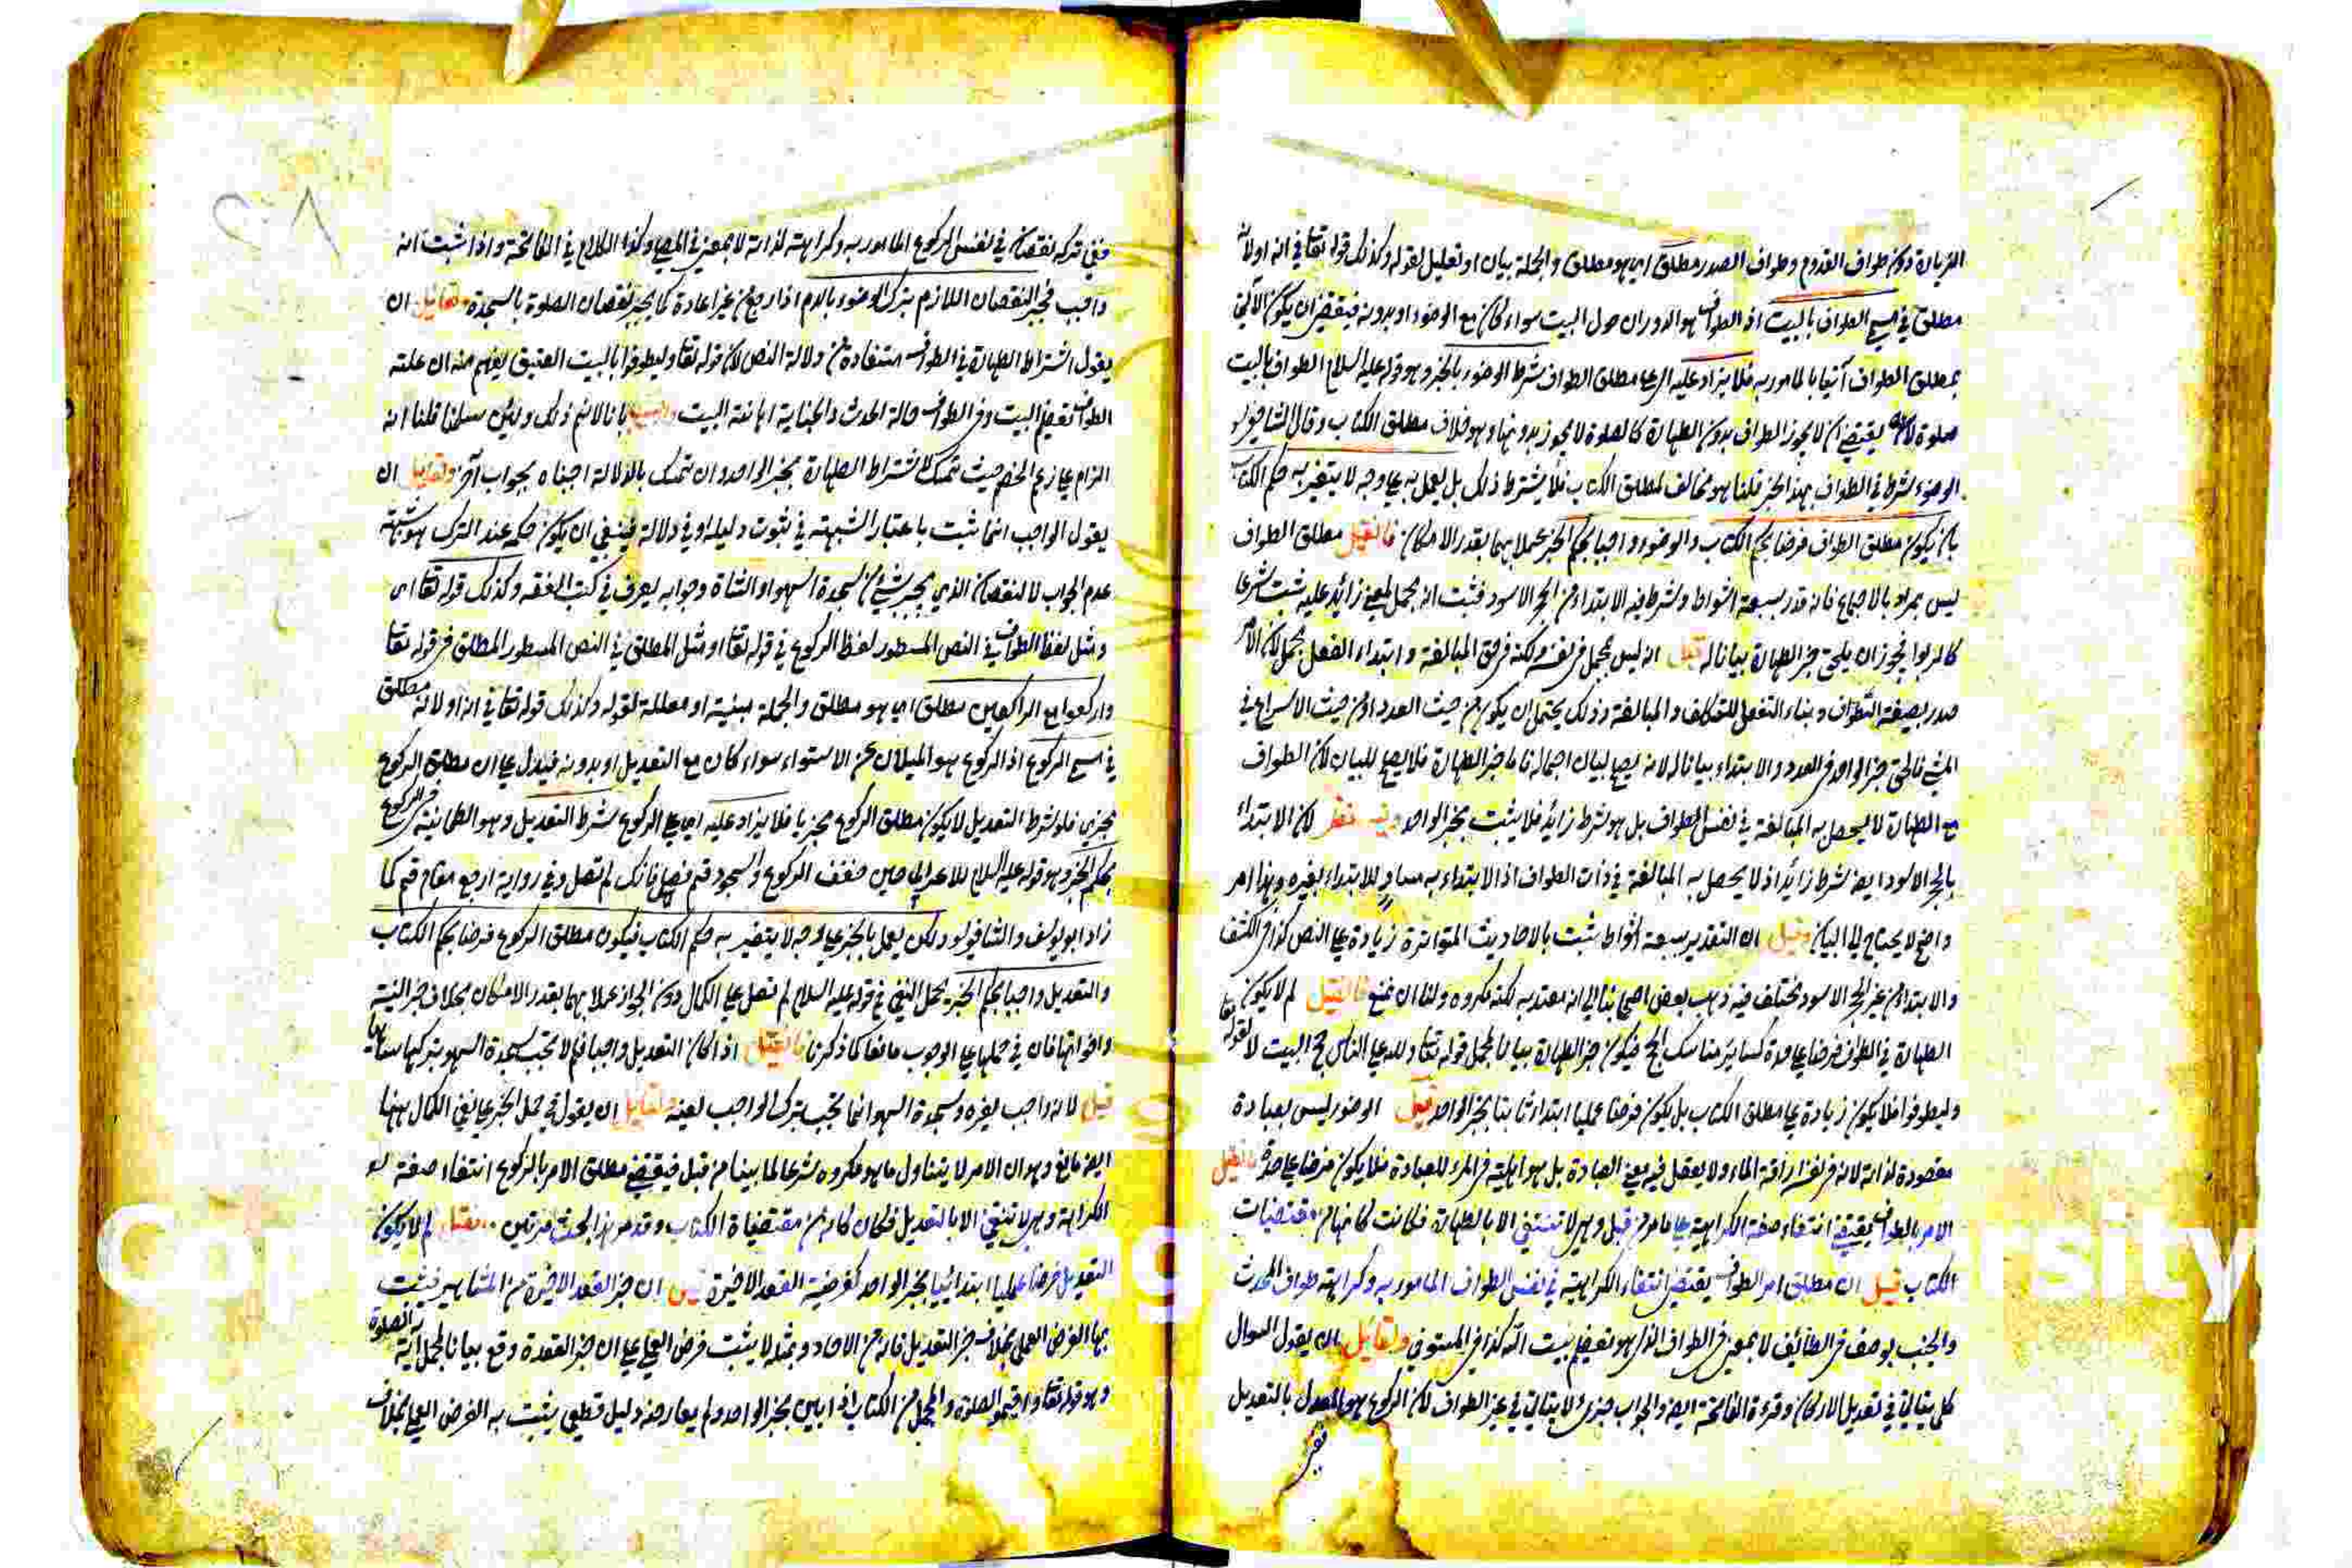 الزيارة دون طواف القدوم وطواف الصدر مطلق اي هو مطلق والجملة بيان او تعليل لقوله وكذلك قوله تعا في انه اولانه
مطلق في مسمى الطواف بالبيت اذ الطواف هو الدوران حول البيت سواء كان مع الوضوء او بدونه فيقتضي ان يكون الآتي
بمطلق الطواف آتيا بالمامور به فلا يزاد عليه اي على مطلق الطواف شرط الوضوء بالخبر وهو قوله عليه السلام الطواف بالبيت
صلوة لانه يقتضي ان لا يجوز الطواف بدون الطهارة كالصلوة لا يجوز بدونها وهو خلاف مطلق الكتاب وقال الشافعي
الوضوء شرط في الطواف بهذا الخبر قلنا هو مخالف لمطلق الكتاب فلا يشترط ذلك بل يعمل به على وجه لا يتغير به حكم الكتاب
بان يكون مطلق الطواف فرضا بحكم الكتاب والوضوء واجبا بحكم الخبر عملا بهما بقدر الامكان فان قيل مطلق الطواف
ليس بمراد بالاجماع فانه قدر بسبعة اشواط وشرط فيه الابتداء من الحجر الاسود فثبت انه مجمل لمعنى زائد عليه ثبت شرعا
كالربوا فجوز ان يلحق خبر الطهارة بيانا له قيل انه ليس بمجمل في نفسه ولكنه في حق المبالغة وابتداء الفعل مجمل لان الامر
صدر بصيغة التطوف وبناء التفعل للتكلف والمبالغة وذلك يحتمل ان يكون من حيث العدد او من حيث الاسراع في
المشي فالحق خبر الواحد في العدد والابتداء بيانا له لانه يصلح لبيان اجماله فاما خبر الطهارة فلا يصلح للبيان لان الطواف
مع الطهارة لا يحصل به المبالغة في نفس الطواف بل هو شرط زائد فلا يثبت بخبر الواحد وفيه نظر لان الابتداء
بالحجر الاسود ايضا شرط زائد اذ لا يحصل به المبالغة في ذات الطواف اذ الابتداء به مساو للابتداء بغيره وهذا امر
واضح لا يحتاج الى البيان وقيل ان التقدير بسبعة اشواط ثبت بالاحاديث المتواترة زيادة على النص كذا في الكشف
والابتداء من غير الحجر الاسود مختلف فيه ذهب بعض اصحابنا الى انه معتد به لكنه مكروه ولنا ان نمنع فان قيل لم لا يكون
الطهارة في الطواف فرضا على حدة كسائر مناسك الحج فيكون خبر الطهارة بيانا لمجمل قوله تعا ولله على الناس حج البيت لا لقوله تعا
وليطوفوا فلا يكون زيادة على مطلق الكتاب بل يكون فرضا عمليا ابتداء ثابتا بخبر الواحد قيل الوضوء ليس بعبادة
مقصودة لذاته لانه في نفسه اراقة الماء ولا يعقل فيه معنى العبادة بل هو اهلية في المرء للعبادة فلا يكون فرضا على حدة فان قيل
الامر بالطواف يقتضي انتفاء صفة الكراهية على ما مر من قبل وهي لا تنتفي الا بالطهارة فكانت كانها من مقتضيات
الكتاب قيل ان مطلق امر الطواف يقتضي انتفاء الكراهية في نفس الطواف المامور به وكراهته طواف المحدث
والجنب لوصف في الطائف لا لمعنى في الطواف الذي هو تعظيم بيت الله كذا في المستوفي ولقائل ان يقول السؤال
كل يتأتى في تعديل الاركان وقراءة الفاتحة ايضا والجواب جزئ لا يتأتى في غير الطواف لان الركوع هو المعدل بالتعديل
ففي تركه نقصان في نفس الركوع المامور به وكراهته لذاته لا لمعنى في المصلي وكذا الكلام في الفاتحة واذا ثبت انه
واجب فيجبر النقصان اللازم بترك الوضوء بالدم اذا رجع من غير اعادة كما يجبر نقصان الصلوة بالسجدة ولقائل ان
يقول اشتراط الطهارة في الطواف مستفادة من دلالة النص لان قوله تعا وليطوفوا بالبيت العتيق يفهم منه ان علته
الطواف تعظيم البيت وفي الطواف حالة الحدث والجنابة اهانة البيت واجيب بانا لا نم ذلك ولئن سلمنا قلنا انه
الزام على زعم الخصم حيث تمسك لاشتراط الطهارة بخبر الواحد وان تمسك بالدلالة اجبناه بجواب آخر ولقائل ان
يقول الواجب انما ثبت باعتبار الشبهة في ثبوت دليله او في دلالته فينبغي ان يكون حكمه عند الترك هو شبهة
عدم الجواب لا النقصان الذي يجبر بشيء من سجدة السهو او الشاة وجوابه يعرف في كتب الفقه وكذلك قوله تعا اى
ومثل لفظ الطواف في النص المسطور لفظ الركوع في قوله تعا او مثل المطلق في النص المسطور المطلق في قوله تعا
واركعوا مع الراكعين مطلق اي هو مطلق والجملة مبنية او معللة لقوله وكذلك قوله تعا في انه او لانه مطلق
في مسمى الركوع اذ الركوع هو الميلان عن الاستواء سواء كان مع التعديل او بدونه فيدل على ان مطلق الركوع
مجزي فلو شرط التعديل لا يكون مطلق الركوع مجزيا فلا يزاد عليه اي على الركوع شرط التعديل وهو الطمانينة في الركوع
بحكم الخبر وهو قوله عليه السلام للاعرابي حين خفف الركوع والسجود قم فصل فانك لم تصل وفي رواية ارجع مقام قم كما
زاد ابو يوسف والشافعي ولكن يعمل بالخبر على وجه لا يتغير به حكم الكتاب فيكون مطلق الركوع فرضا بحكم الكتاب
والتعديل واجبا بحكم الخبر يحمل النفي في قوله عليه السلام لم تصل على الكمال دون الجواز عملا بهما بقدر الامكان بخلاف خبر النية
واخواتها فان في حملها على الوجوب مانعا كما ذكرنا فان قيل اذا كان التعديل واجبا فلم لا تجب سجدة السهو بتركها ساهيا
قيل لانه واجب لغيره وسجدة السهو انما تجب بترك الواجب لعينه ولقائل ان يقول في حمل الخبر على نفي الكمال ههنا
ايضا مانع وهو ان الامر لا يتناول ما هو مكروه شرعا لما بينا من قبل فيقتضي مطلق الامر بالركوع انتفاء صفة
الكراهة وهي لا تنتفي الا بالتعديل فكان كانه من مقتضيات الكتاب وقد مر هذا البحث مرتين فان قيل لم لا يكون
التعديل فرضا عمليا ابتدائيا بخبر الواحد كفرضية القعدة الاخيرة قيل ان خبر القعدة الاخيرة من المشاهير فيثبت
بها الفرض العملي بخلاف خبر التعديل فانه من الاحاد وبمثله لا يثبت فرض العملي على ان خبر القعدة وقع بيانا لمجمل آية الصلوة
وهو قوله تعا واقيموا الصلوة والمجمل من الكتاب اذا بين بخبر الواحد ولم يعارضه دليل قطعي يثبت به الفرض العملي بخلاف